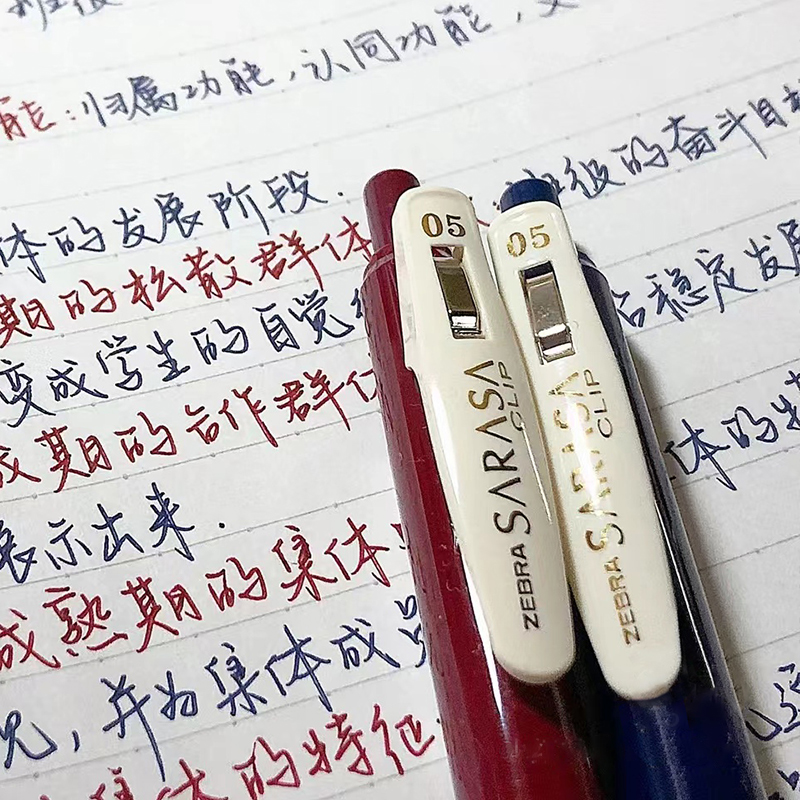 能:归属功能,认同功能,
体的发展阶段.
班级的奋斗目标
期的松散群体
变成学生的自觉
稳定发展
成熟期的合作群体
体的特
展示出来.
成熟期的集体
,并为集体成员
集体的特征.
05
SARASA
CLIP
ZEBRA
05
SARASA
CLIP
ZEBRA